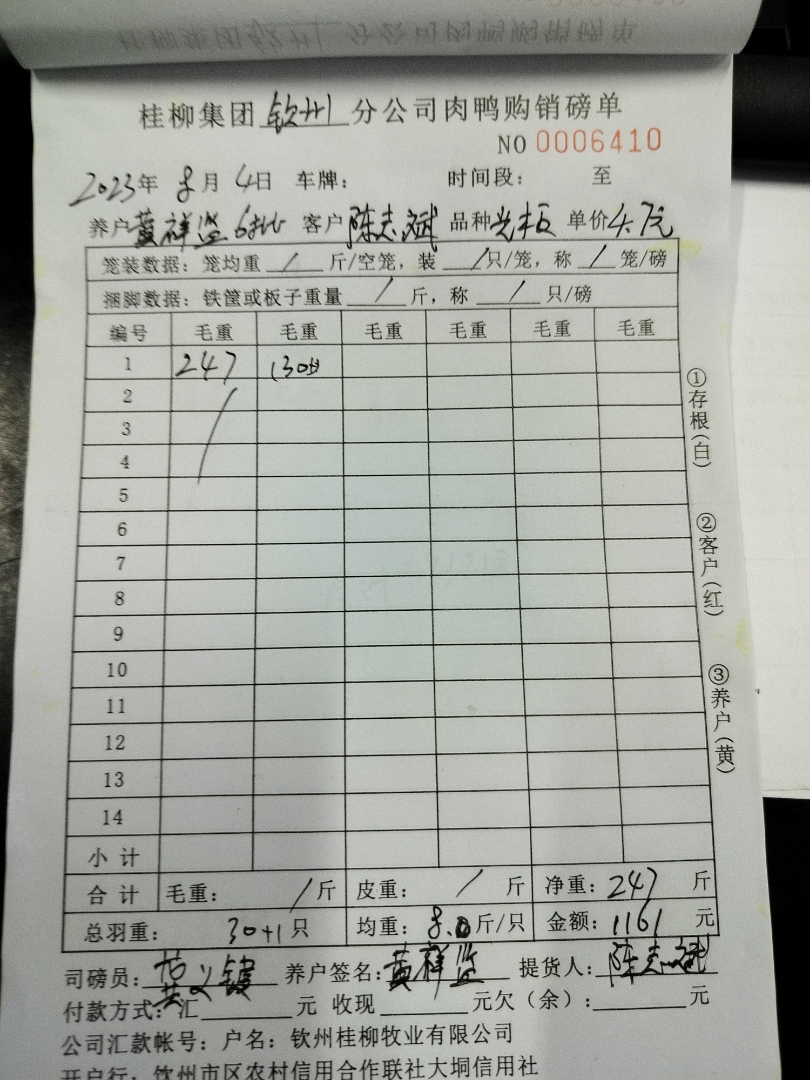 桂柳集团 钦州 分公司肉鸭购销磅单
NO 0006410
2023年 8月 4日 车牌： 时间段： 至
养户 黄祥监 6批 客户 陈志斌 品种 单价 4.7元
笼装数据：笼均重 / 斤/空笼，装 / 只/笼，称 / 笼/磅
捆脚数据：铁筐或板子重量 / 斤，称 / 只/磅
编号 毛重 毛重 毛重 毛重 毛重 毛重
1 247
2
3
4
5
6
7
8
9
10
11
12
13
14
小计
合计 毛重： / 斤 皮重： / 斤 净重：247 斤
总羽重： 30+1 只 均重： 斤/只 金额：1161 元
司磅员： 养户签名：黄祥监 提货人：陈志斌
付款方式：汇 元 收现 元欠（余）： 元
公司汇款帐号：户名：钦州桂柳牧业有限公司
开户行：钦州市区农村信用合作联社大垌信用社
①存根（白）
②客户（红）
③养户（黄）